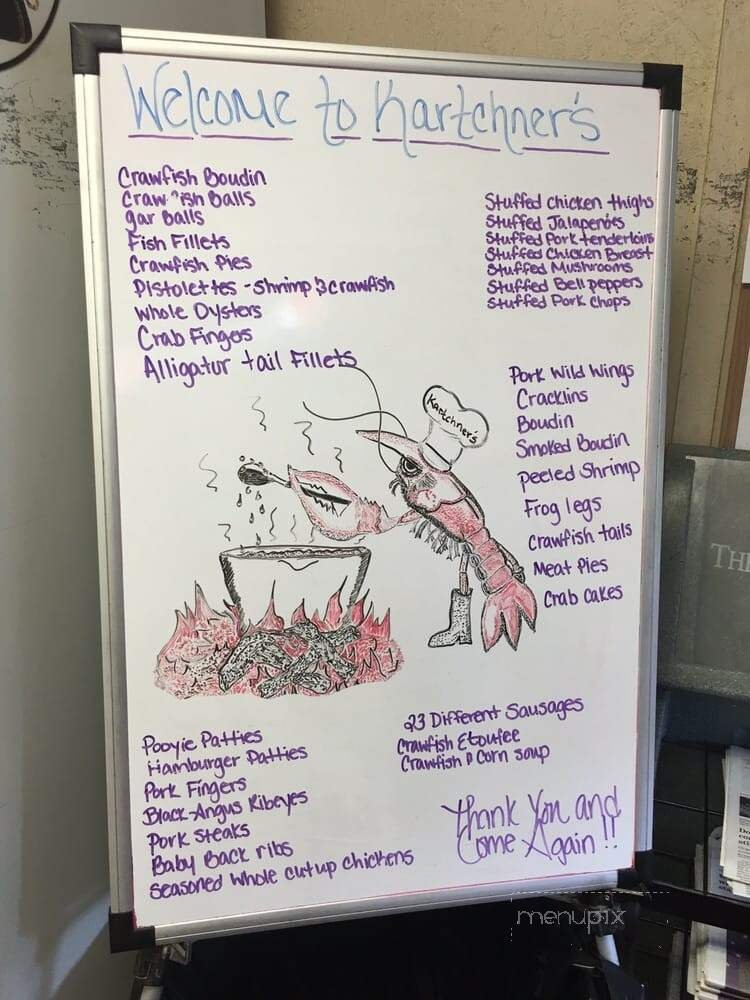 Welcome to Kartchner's
Crawfish Boudin
Crawfish Balls
gar Balls
Fish Fillets
Crawfish Pies
Pistolettes - Shrimp & crawfish
Whole Oysters
Crab Fingers
Alligatur tail Fillets
Stuffed Chicken thighs
Stuffed Jalapeñoes
Stuffed Pork tenderloins
Stuffed Chicken Breast
Stuffed Mushrooms
Stuffed Bell peppers
Stuffed Pork Chops
Kartchner's
Pork Wild Wings
Cracklins
Boudin
Smoked Boudin
Peeled Shrimp
Frog legs
Crawfish tails
Meat Pies
Crab Cakes
Pooyie Patties
Hamburger Patties
Pork Fingers
Black-Angus Ribeyes
Pork Steaks
Baby Back ribs
Seasoned whole cut up chickens
23 Different Sausages
Crawfish Etoufee
Crawfish & Corn soup
Thank You and
Come Again!!
menupix